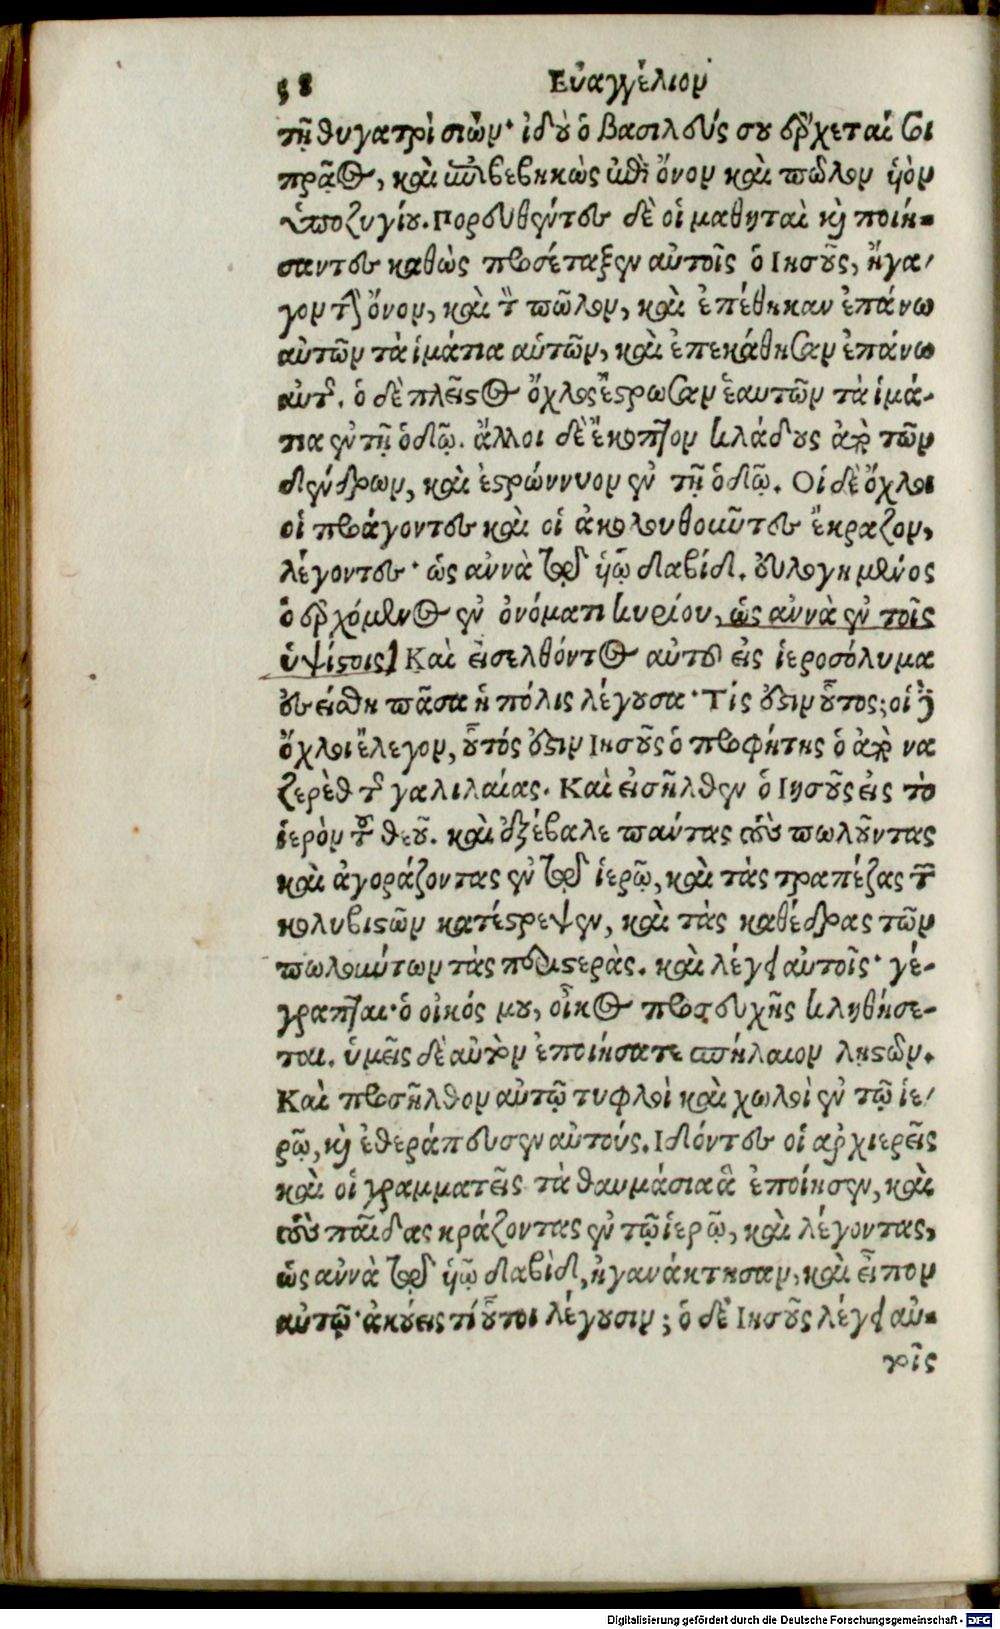 58 Εὐαγγέλιον
τῇ θυγατρὶ σιών· ἰδοὺ ὁ βασιλεύς σου ἔρχεταί σοι
πρᾶος, καὶ ἐπιβεβηκὼς ἐπὶ ὄνον καὶ πῶλον ὑὸν
ὑποζυγίου. Πορευθέντες δὲ οἱ μαθηταὶ καὶ ποιή-
σαντες καθὼς προσέταξεν αὐτοῖς ὁ Ιησοῦς, ἤγα-
γον τὴν ὄνον, καὶ τὸν πῶλον, καὶ ἐπέθηκαν ἐπάνω
αὐτῶν τὰ ἱμάτια αὑτῶν, καὶ ἐπεκάθησαν ἐπάνω
αὐτῶν. ὁ δὲ πλεῖστος ὄχλος ἔστρωσαν ἑαυτῶν τὰ ἱμά-
τια ἐν τῇ ὁδῷ. ἄλλοι δὲ ἔκοπτον κλάδους ἀπὸ τῶν
δένδρων, καὶ ἐστρώννυον ἐν τῇ ὁδῷ. Οἱ δὲ ὄχλοι
οἱ προάγοντες καὶ οἱ ἀκολουθοῦντες ἔκραζον,
λέγοντες· ὡς αννὰ τῷ ὑῷ δαβίδ. εὐλογημένος
ὁ ἐρχόμενος ἐν ὀνόματι κυρίου, ὡς αννὰ ἐν τοῖς
ὑψίστοις] Καὶ εἰσελθόντος αὐτοῦ εἰς ἱεροσόλυμα
ἐσείσθη πᾶσα ἡ πόλις λέγουσα· Τίς ἐστιν οὗτος; οἱ δὲ
ὄχλοι ἔλεγον, οὗτός ἐστιν Ιησοῦς ὁ προφήτης ὁ ἀπὸ να
ζερὲθ τῆς γαλιλαίας. Καὶ εἰσῆλθεν ὁ Ιησοῦς εἰς τὸ
ἱερὸν τοῦ θεοῦ. καὶ ἐξέβαλε πάντας τοὺς πωλοῦντας
καὶ ἀγοράζοντας ἐν τῷ ἱερῷ, καὶ τὰς τραπέζας τῶν
κολυβιστῶν κατέστρεψεν, καὶ τὰς καθέδρας τῶν
πωλούντων τὰς περιστεράς. καὶ λέγει αὐτοῖς· γέ-
γραπται· ὁ οἰκός μου, οἶκος προσευχῆς κληθήσε-
ται. ὑμεῖς δὲ αὐτὸν ἐποιήσατε σπήλαιον λῃστῶν.
Καὶ προσῆλθον αὐτῷ τυφλοὶ καὶ χωλοὶ ἐν τῷ ἱε-
ρῷ, καὶ ἐθεράπευσεν αὐτούς. Ιδόντες οἱ ἀρχιερεῖς
καὶ οἱ γραμματεῖς τὰ θαυμάσια ἃ ἐποίησεν, καὶ
τοὺς παῖδας κράζοντας ἐν τῷ ἱερῷ, καὶ λέγοντας,
ὡς αννὰ τῷ ὑῷ δαβίδ, ἠγανάκτησαν, καὶ εἶπον
αὐτῷ· ἀκούεις τί οὗτοι λέγουσιν; ὁ δὲ Ιησοῦς λέγει αὐ-
τοῖς
Digitalisierung gefördert durch die Deutsche Forschungsgemeinschaft - DFG